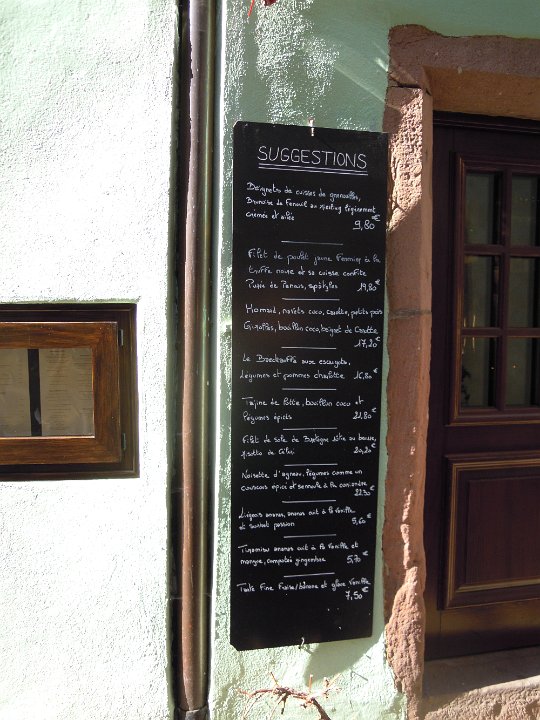 SUGGESTIONS
Beignets de cuisses de grenouilles,
Brunoise de Fenouil au légèrement
crémée et aillée
9,80€
Filet de poulet jaune Fermier à la
truffe noire et sa cuisse confite
Purée de Panais, spätzles 19,80€
Homard, navets coco, carotte, petits pois
Girolles, bouillon coco, beignet de Carotte
17,20€
Le Baeckaoffa aux escargots,
légumes et pommes charlotte 16,80€
Tajine de Lotte, bouillon coco et
légumes épicés 21,80€
Filet de sole de Bretagne rôtie au beurre,
risotto de Céleri 20,20€
Noisette d'agneau, légumes comme un
couscous épicé et semoule à la coriandre
22,30€
Liégeois ananas, ananas cuit à la Vanille
et sorbet passion 5,60€
Tiramisu ananas cuit à la Vanille et
mangue, compotée gingembre 5,70€
Tarte Fine Fraise/banane et glace Vanille
7,50€